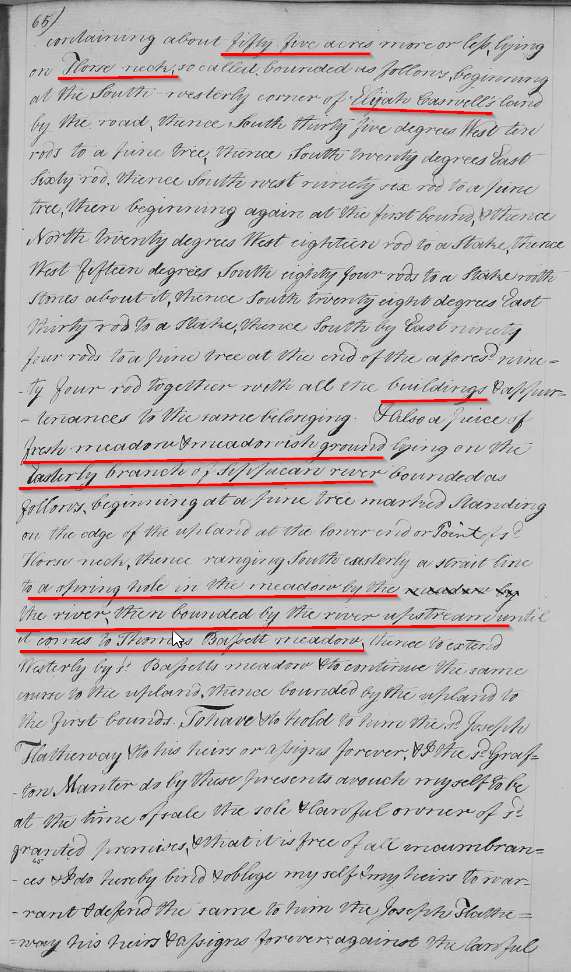 65)
containing about fifty five acres more or less, lying
on Horse neck, so called, bounded as follows, beginning
at the South-westerly corner of Elijah Caswell's land
by the road, thence South thirty five degrees West ten
rods to a pine tree, thence South twenty degrees East
Sixty rod, thence South west ninety six rod to a pine
tree, then beginning again at the first bound, & thence
North twenty degrees West eighteen rod to a Stake, thence
West fifteen degrees South eighty four rods to a Stake with
stones about it, thence South twenty eight degrees East
thirty rod to a Stake, thence South by East ninety
four rods to a pine tree at the end of the afores.d nine=
-ty four rod together with all the buildings & appur-
-tenances to the same belonging. & also a piece of
fresh meadow & meadowish ground lying on the
Easterly branch of Sippacan river bounded as
follows, beginning at a pine tree marked Standing
on the edge of the upland at the lower end or Point of s.d
Horse neck, thence ranging South easterly a strait line
to a spring hole in the meadow by the meadow by
the river, then bounded by the river upstream until
it comes to Thomas Bassett meadow, thence to extend
Westerly by s.d Bassetts meadow & to continue the same
course to the upland, thence bounded by the upland to
the first bounds. To have & to hold to him the s.d Joseph
Hatheway & to his heirs or assigns forever, & I the s.d Graf=
-ton Manter do by these presents avouch myself to be
at the time of sale the sole & lawful owner of s.d
granted premises, & that it is free of all incumbran=
-ces & I do hereby bind & oblige myself & my heirs to war-
-rant & defend the same to him the Joseph Hathe=
=way his heirs & assigns forever against the lawful